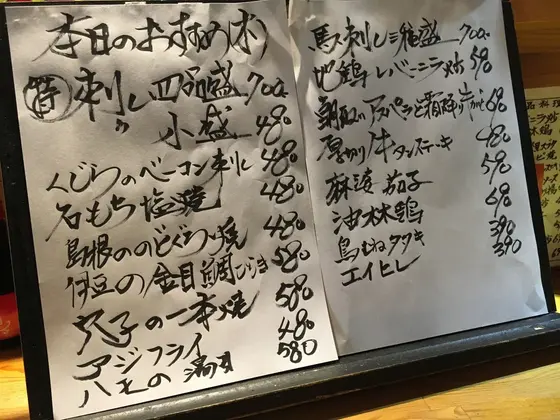 本日のおすすめ(木)
㊕刺し四品盛 700
〃 小盛 480
くじらのベーコン刺し 480
石もち塩焼 480
島根ののどぐろ焼 480
伊豆の金目鯛ひらき 580
穴子の一本焼 580
アジフライ 480
ハモの湯引 580
馬刺し三種盛 700
地鶏レバーニラ炒 590
アスパラと霜降
厚切り牛タンステーキ 480
麻婆茄子 590
油林鶏 690
鳥むねタタキ 390
エイヒレ 390